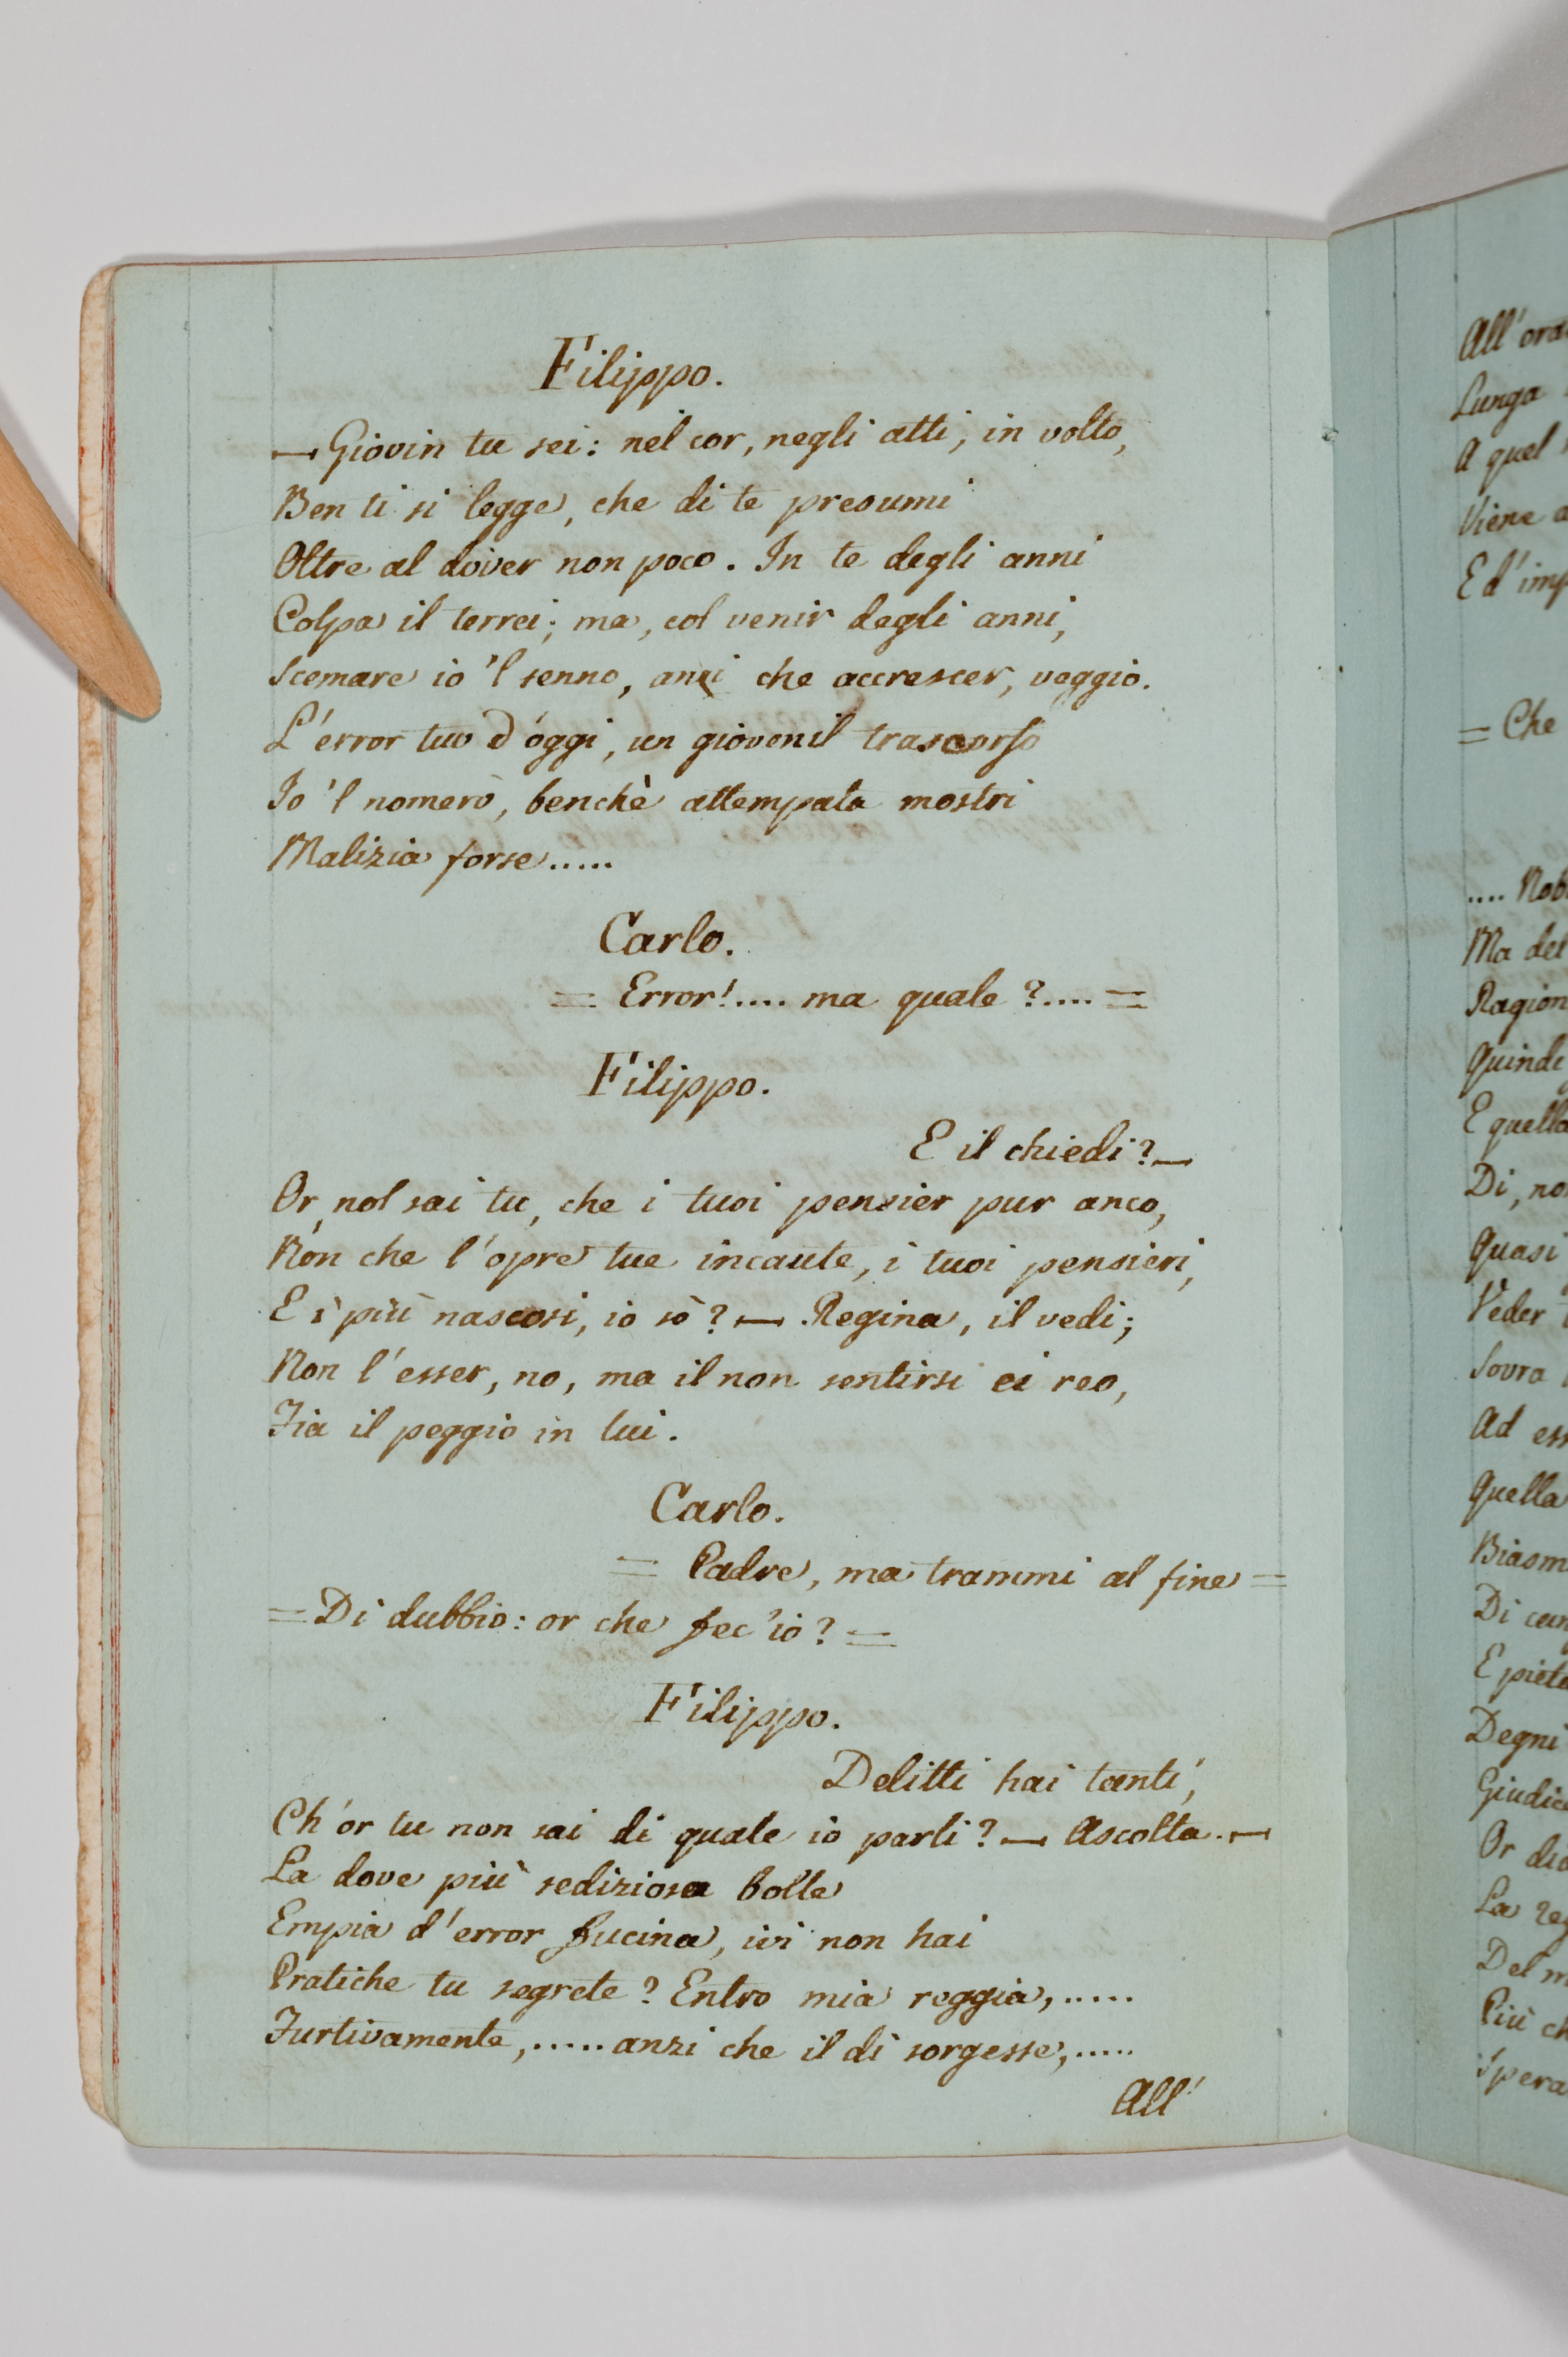 Filippo.
— Giovin tu sei: nel cor, negli atti, in volto,
Ben ti si legge, che di te presumi
Oltre al dover non poco. In te degli anni
Colpa il terrei; ma, col venir degli anni,
Scemare io 'l senno, anzi che accrescer, veggio.
L'error tuo d'oggi, un giovenil trascorso
Io 'l nomerò, benchè attempata mostri
Malizia forse.....
Carlo.
= Error!.... ma quale?.... =
Filippo.
E il chiedi? —
Or, nol sai tu, che i tuoi pensier pur anco,
Non che l'opre tue incaute, i tuoi pensieri,
E i più nascosi, io sò? — Regina, il vedi;
Non l'esser, no, ma il non sentirsi ei reo,
Fia il peggio in lui.
Carlo.
= Padre, ma trammi al fine =
= Di dubbio: or che fec'io? =
Filippo.
Delitti hai tanti,
Ch'or tu non sai di quale io parli? — Ascolta. —
La dove più sediziosa bolle
Empia d'error fucina, ivi non hai
Pratiche tu segrete? Entro mia reggia,.....
Furtivamente,..... anzi che il dì sorgesse,.....
All'
All'
Lunga
A quel
Viene
E d'
= Che
....
Ma del
Ragion
Quind
E quella
Di, no
Quasi
Veder
Sovra
Ad
Quella
Di
E
Degni
Or
La
Del
Più